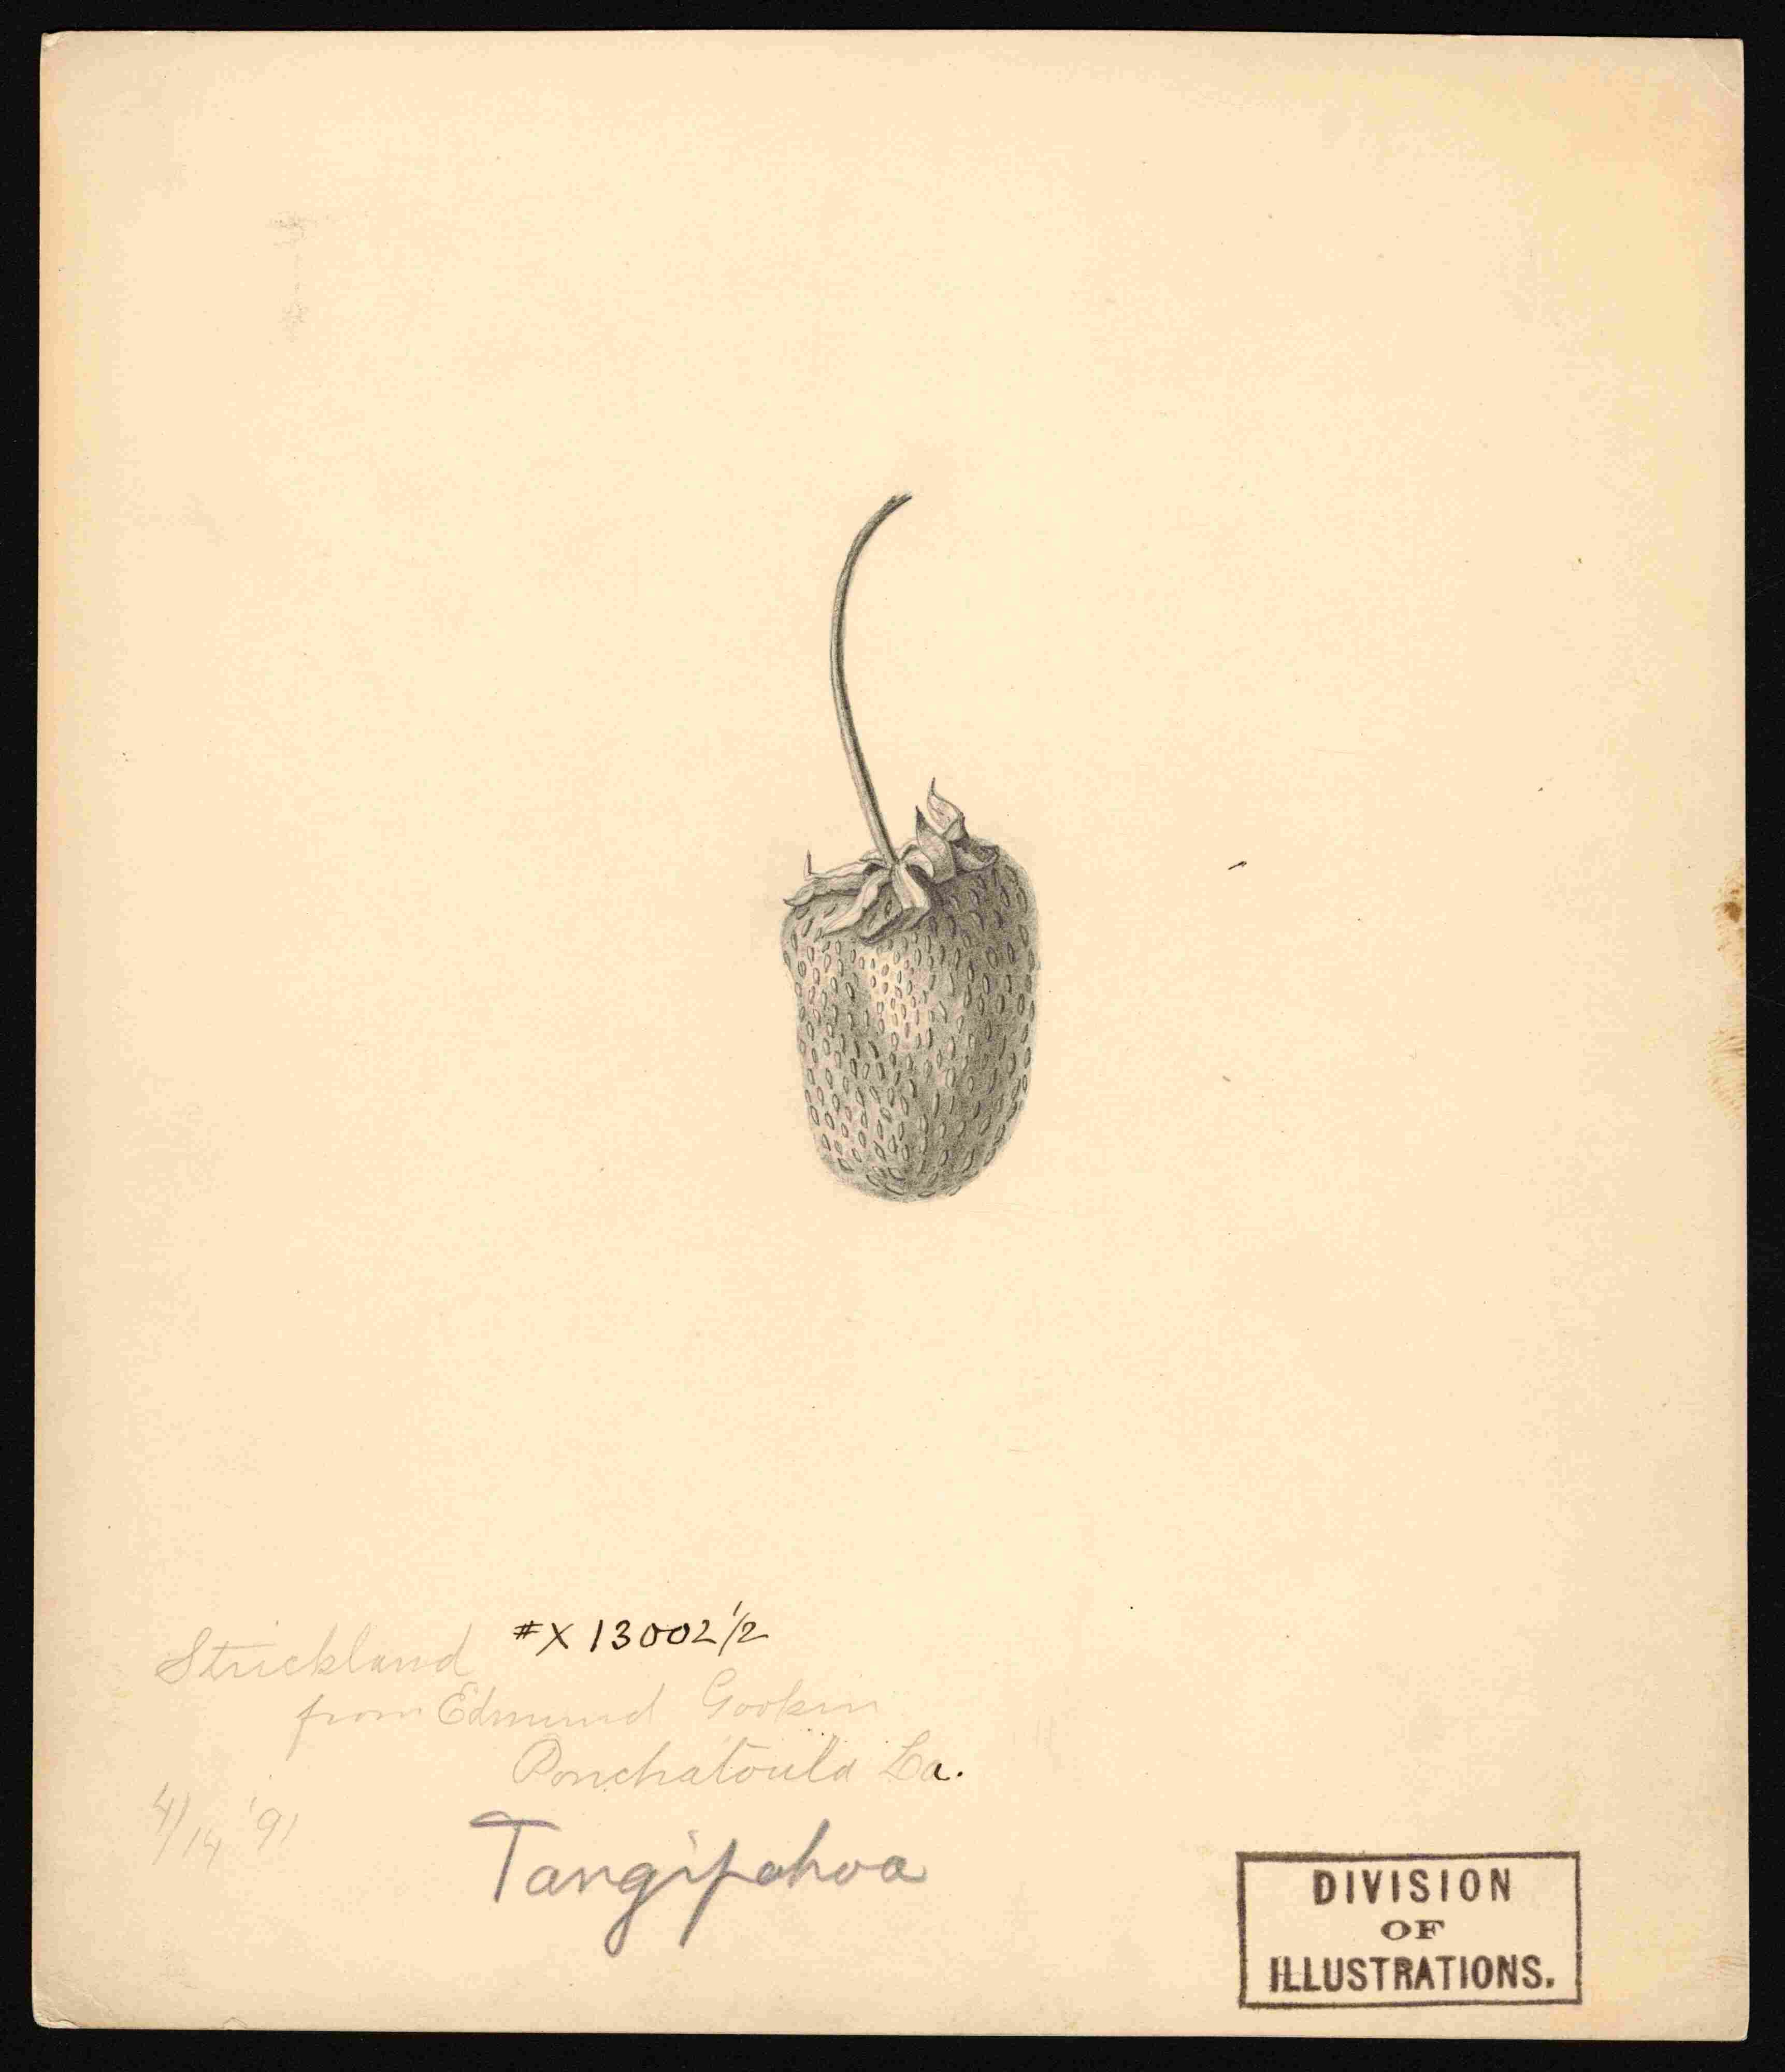 Strickland #X 13002 1/2
from Edmund Gookin
Ponchatoula La.
4/14 '91
Tangipahoa
DIVISION
OF
ILLUSTRATIONS.